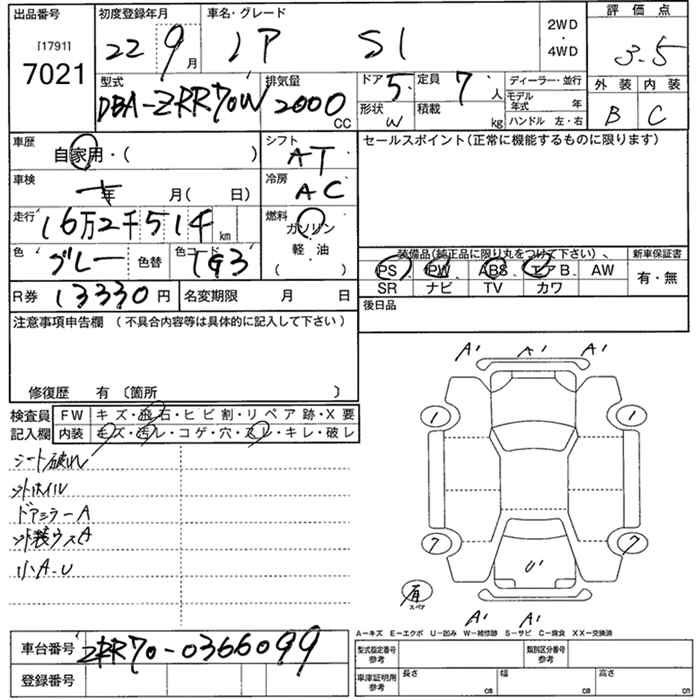 出品番号
[1791]
7021
初度登録年月
22 9月
車名・グレード
SI
2WD
・
4WD
評価点
3.5
外装 内装
B C
型式
DBA-ZRR70W
排気量
2000
CC
ドア
5
形状
W
定員
7人
積載
kg
ディーラー・並行
モデル年式 年
ハンドル 左・右
車歴
自家用・( )
シフト
AT
セールスポイント(正常に機能するものに限ります)
車検
年 月( 日)
冷房
AC
走行
16万2千514 km
燃料
ガソリン
軽・油
( )
色
グレー
色替
色コード
1G3
装備品(純正品に限り丸をつけて下さい)
PS PW ABS エアB AW
SR ナビ TV カワ
新車保証書
有・無
R券 13330円
名変期限 月 日
後日品
注意事項申告欄 (不具合内容等は具体的に記入して下さい)
修復歴 有 〔箇所 〕
検査員記入欄
FW キズ・飛石・ヒビ割・リペア跡・X要
内装 キズ・汚レ・コゲ・穴・スレ・キレ・破レ
シート破れ
ドアミラーA
外装ウスA
小A.U
A' A' A'
1 1
7 7
U'
有
スペア
A' A'
A-キズ E-エクボ U-凹み W-補修跡 S-サビ C-腐食 XX-交換済
車台番号 ZRR70-0366099
登録番号
型式指定番号
参考
類別区分番号
参考
車庫証明用
参考
長さ cm
幅 cm
高さ cm